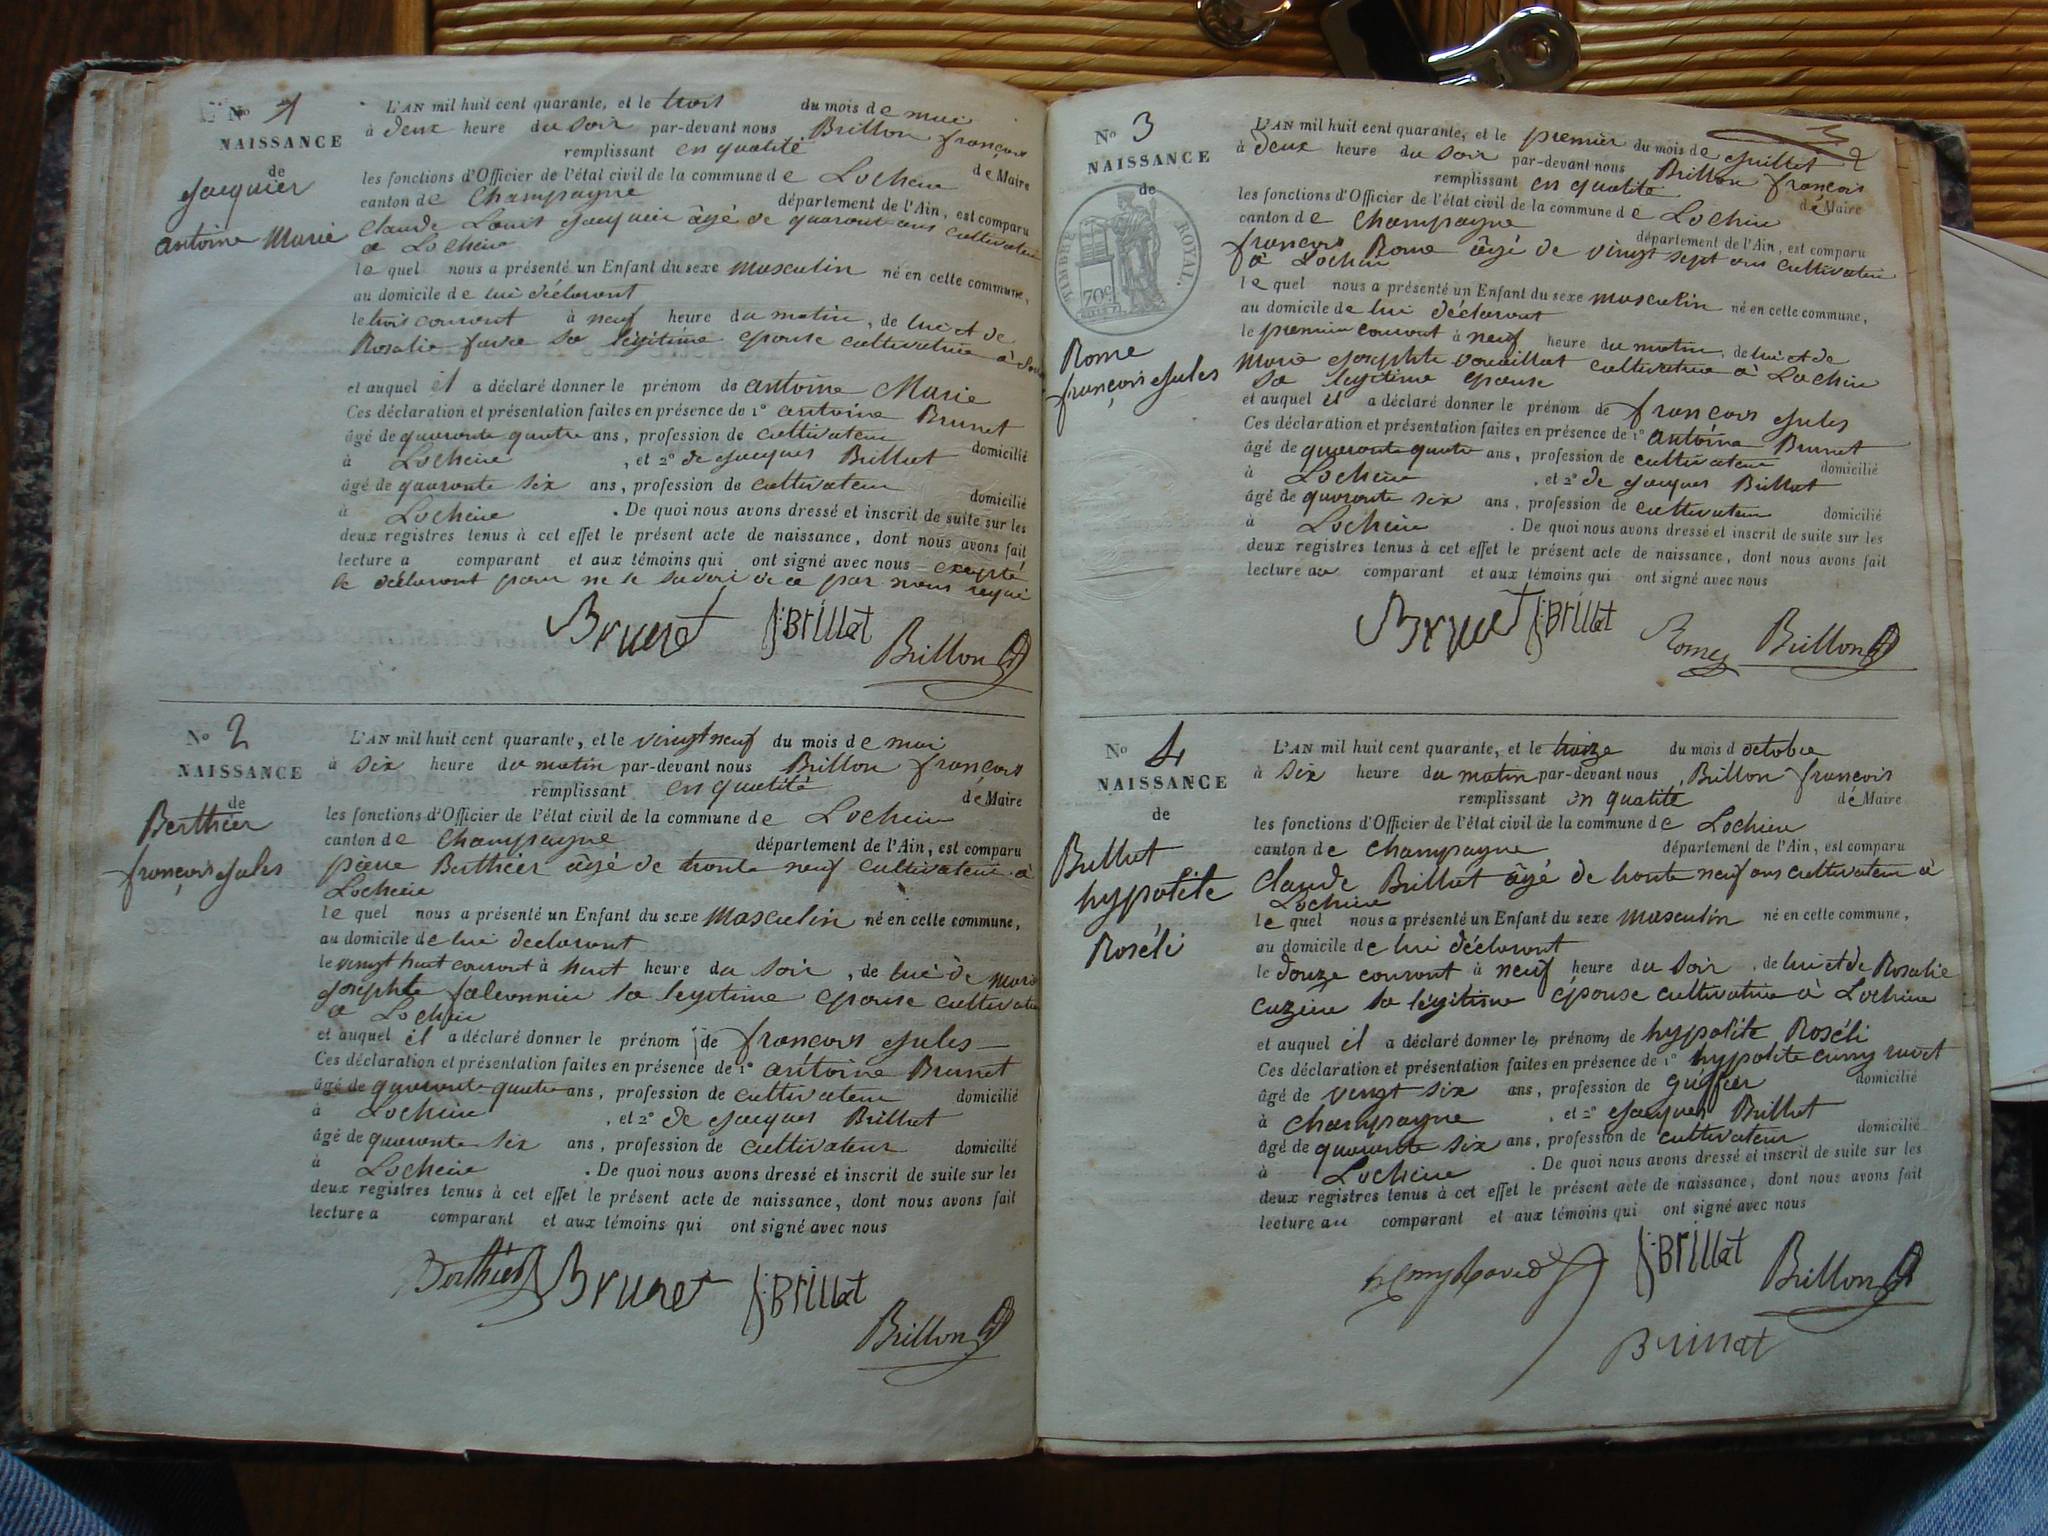 No 1
NAISSANCE
de
Jacquier
Antoine Marie
L'AN mil huit cent quarante, et le trois du mois de mai
à deux heure du soir par-devant nous Brillon françois
remplissant en qualité de Maire
les fonctions d'Officier de l'état civil de la commune de Lochieu
canton de Champagne département de l'Ain, est comparu
Claude Louis Jacquier âgé de quarante ans cultivateur
à Lochieu
le quel nous a présenté un Enfant du sexe masculin né en cette commune,
au domicile de lui déclarant
le trois courant à neuf heure du matin, de lui et de
Rosalie favre sa légitime épouse cultivatrice à
et auquel il a déclaré donner le prénom de antoine Marie
Ces déclaration et présentation faites en présence de 1º antoine Brunet
âgé de quarante quatre ans, profession de cultivateur domicilié
à Lochieu, et 2º de Jacques Brillat
âgé de quarante six ans, profession de cultivateur domicilié
à Lochieu. De quoi nous avons dressé et inscrit de suite sur les
deux registres tenus à cet effet le présent acte de naissance, dont nous avons fait
lecture a comparant et aux témoins qui ont signé avec nous excepté
le déclarant pour ne le savoir de ce par nous requi
Brunet J:Brillat Brillon
No 2
NAISSANCE
de
Berthier
françois Jules
L'AN mil huit cent quarante, et le vingt neuf du mois de mai
à six heure du matin par-devant nous Brillon françois
remplissant en qualité de Maire
les fonctions d'Officier de l'état civil de la commune de Lochieu
canton de Champagne département de l'Ain, est comparu
pierre Berthier âgé de trente neuf cultivateur à
Lochieu
le quel nous a présenté un Enfant du sexe Masculin né en cette commune,
au domicile de lui déclarant
le vingt huit courant à heure du soir, de lui de Marie
Josephte sa légitime épouse cultivatrice
à Lochieu
et auquel il a déclaré donner le prénom de françois Jules
Ces déclaration et présentation faites en présence de 1º antoine Brunet
âgé de quarante quatre ans, profession de cultivateur domicilié
à Lochieu, et 2º de Jacques Brillat
âgé de quarante six ans, profession de cultivateur domicilié
à Lochieu. De quoi nous avons dressé et inscrit de suite sur les
deux registres tenus à cet effet le présent acte de naissance, dont nous avons fait
lecture a comparant et aux témoins qui ont signé avec nous
Berthier Brunet J:Brillat
Brillon
2
No 3
NAISSANCE
de
TIMBRE ROYAL.
70c
Rome
françois Jules
L'AN mil huit cent quarante, et le premier du mois de Juillet
à deux heure du soir par-devant nous Brillon françois
remplissant en qualité de Maire
les fonctions d'Officier de l'état civil de la commune de Lochieu
canton de Champagne département de l'Ain, est comparu
françois Rome âgé de vingt sept ans cultivateur
à Lochieu
le quel nous a présenté un Enfant du sexe masculin né en cette commune,
au domicile de lui déclarant
le premier courant à neuf heure du matin, de lui et de
Marie Josephte cultivatrice à Lochieu
sa légitime épouse
et auquel il a déclaré donner le prénom de françois Jules
Ces déclaration et présentation faites en présence de 1º antoine Brunet
âgé de quarante quatre ans, profession de cultivateur domicilié
à Lochieu, et 2º de Jacques Brillat
âgé de quarante six ans, profession de cultivateur domicilié
à Lochieu. De quoi nous avons dressé et inscrit de suite sur les
deux registres tenus à cet effet le présent acte de naissance, dont nous avons fait
lecture au comparant et aux témoins qui ont signé avec nous
Brunet J:Brillat Rome Brillon
No 4
NAISSANCE
de
Brillat
hypolite
Roséli
L'AN mil huit cent quarante, et le treize du mois d octobre
à six heure du matin par-devant nous Brillon françois
remplissant en qualité de Maire
les fonctions d'Officier de l'état civil de la commune de Lochieu
canton de Champagne département de l'Ain, est comparu
Claude Brillat âgé de trente neuf ans cultivateur à
Lochieu
le quel nous a présenté un Enfant du sexe masculin né en cette commune,
au domicile de lui déclarant
le douze courant à neuf heure du soir, de lui et de Rosalie
sa légitime épouse cultivatrice à Lochieu
et auquel il a déclaré donner les prénoms de hypolite Roséli
Ces déclaration et présentation faites en présence de 1º hypolite
âgé de vingt six ans, profession de domicilié
à Champagne, et 2º Jacques Brillat
âgé de quarante six ans, profession de cultivateur domicilié
à Lochieu. De quoi nous avons dressé et inscrit de suite sur les
deux registres tenus à cet effet le présent acte de naissance, dont nous avons fait
lecture au comparant et aux témoins qui ont signé avec nous
J:Brillat Brillon
Brillat